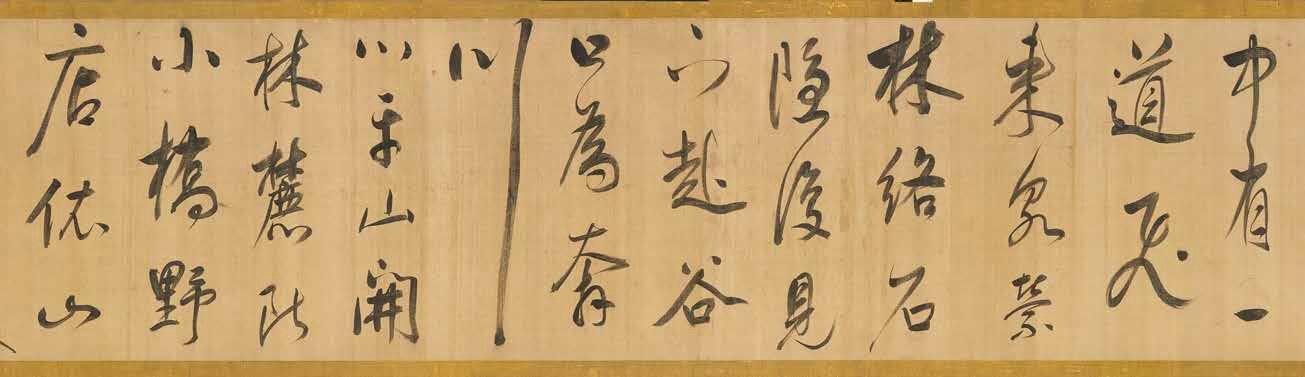 中有一
道飛
來泉縈
林絡石
隱復見
下赴谷
口為奔
川
川平山開
林麓斷
小橋野
店依山